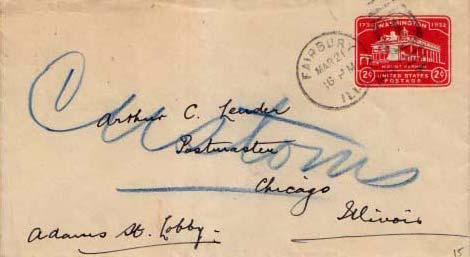 1732 WASHINGTON 1932
MOUNT VERNON
2¢ 2¢
UNITED STATES
POSTAGE
FAIRBURY
MAR 21
ILL
Arthur C. Leuder
Customs
Postmaster
Chicago
Illinois
Adams St. Lobby -
15